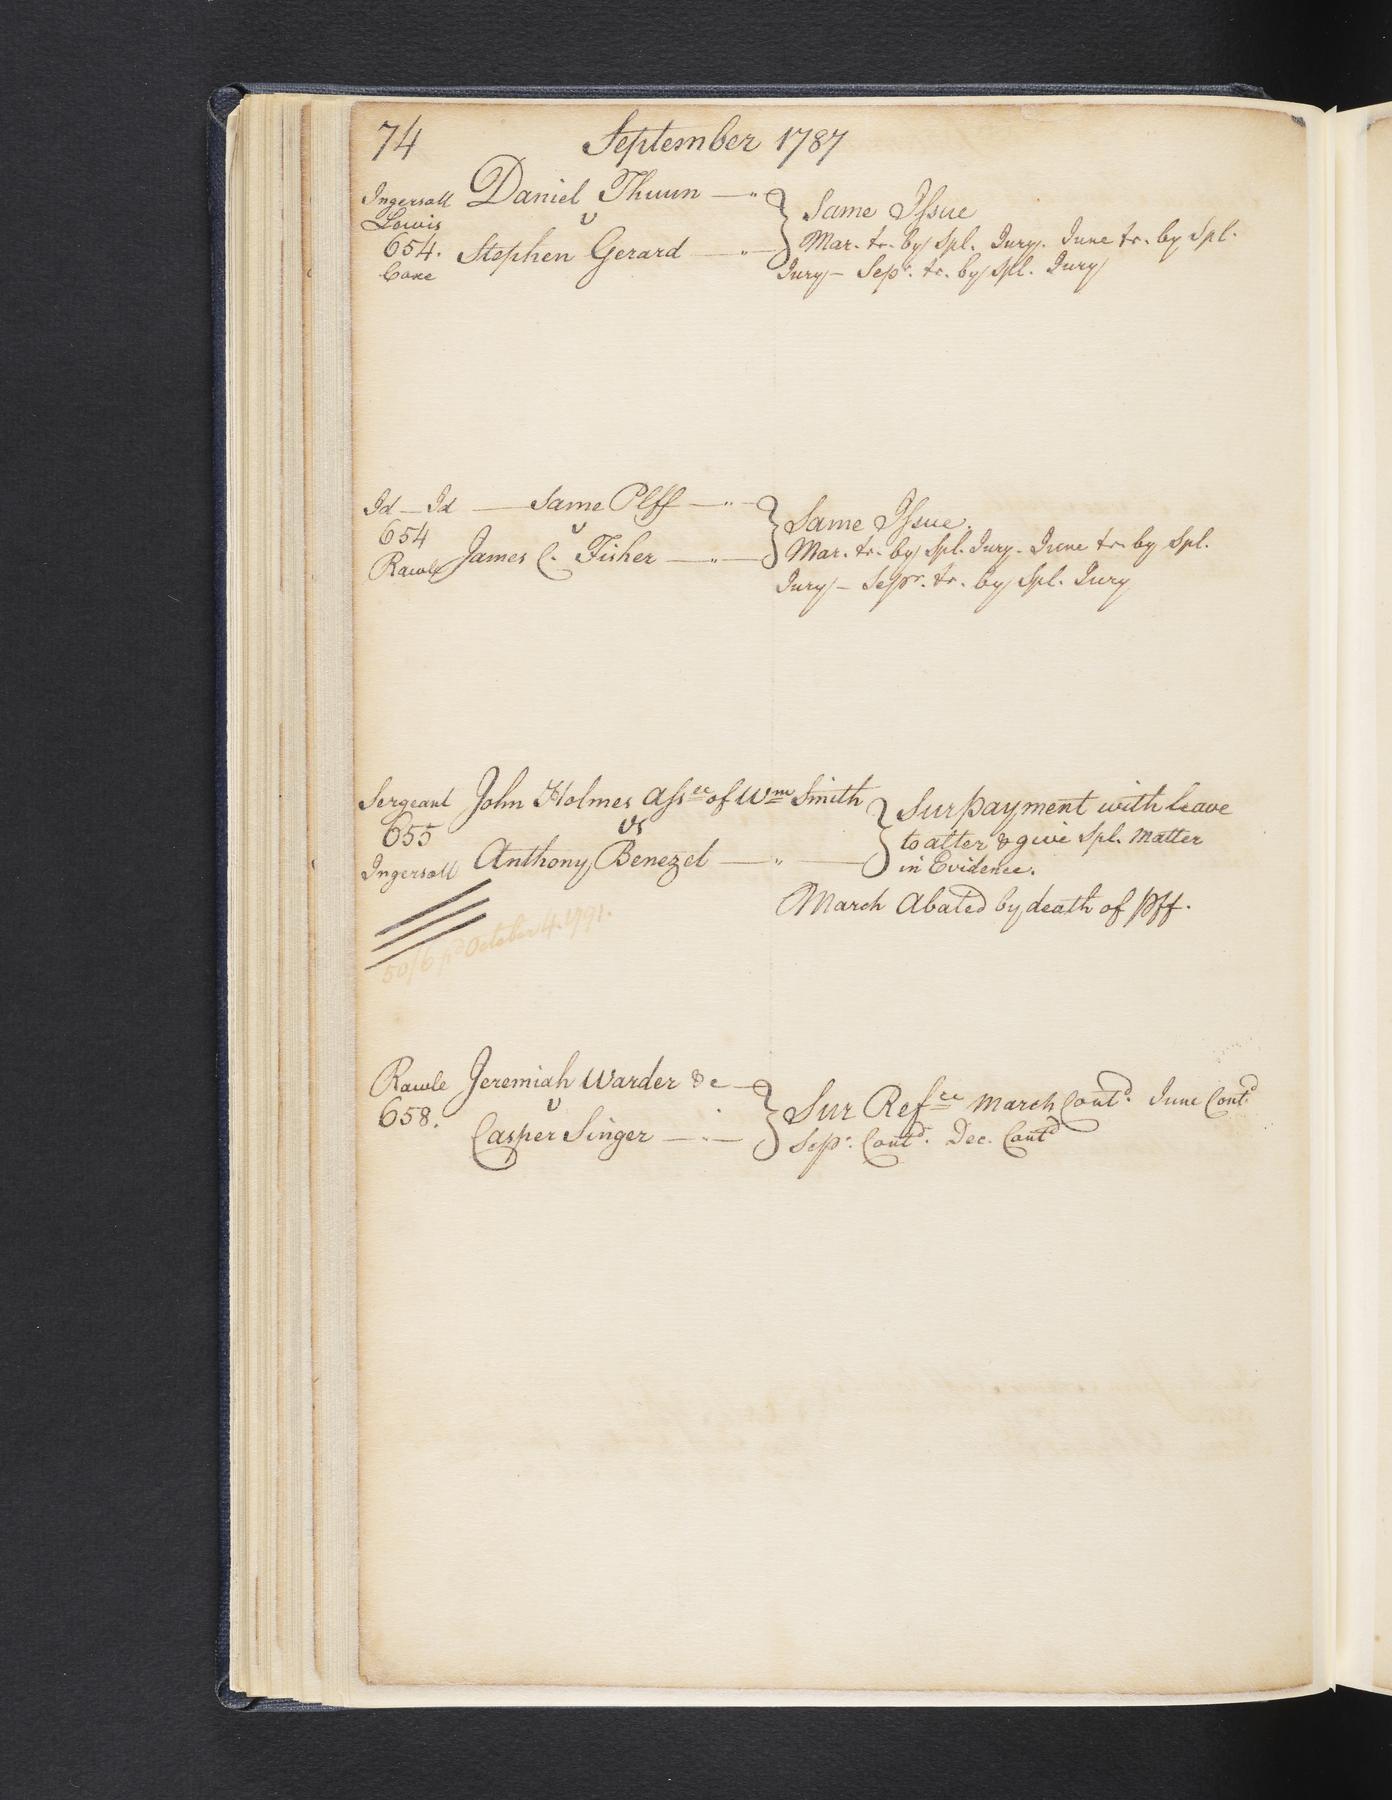 74 September 1787
Ingersoll Daniel Thuun
Lewis v
654. Stephen Gerard
Coxe
Same Issue
Mar. tr. by Spl. Jury. June tr. by Spl.
Jury - Sepr. tr. by Spl. Jury
Id - Id Same Plff
654 v
Rawle James C. Fisher
Same Issue.
Mar. tr. by Spl. Jury - June tr. by Spl.
Jury - Sepr. tr. by Spl. Jury
Sergeant John Holmes assee of Wm Smith
655 vs
Ingersoll Anthony Benezet
Sur payment with leave
to alter & give Spl. Matter
in Evidence.
March Abated by death of plff.
50/6 pd October 4. 1791.
Rawle Jeremiah Warder &c
658. v
Casper Singer
Sur Refce March Contd. June Contd
Sepr. Contd. Dec. Contd